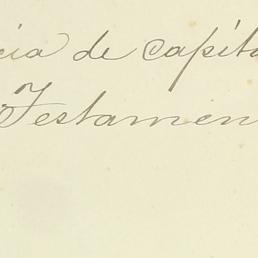 cia de capita
Testamen